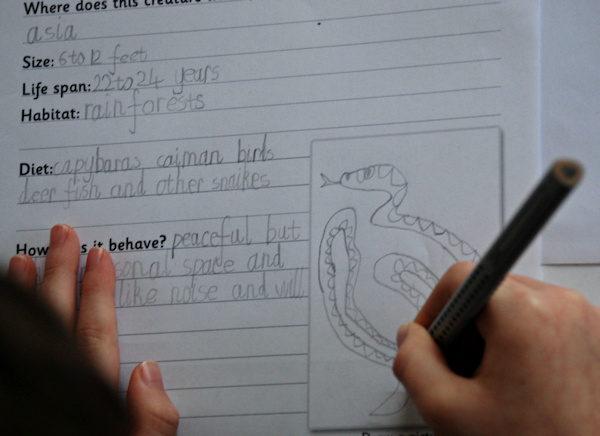 Where does this creature
asia
Size: 6 to 12 feet
Life span: 22 to 24 years
Habitat: rainforests
Diet: capybaras caiman birds
deer fish and other snaikes
How it behave? peaceful but
space and
like noise and will